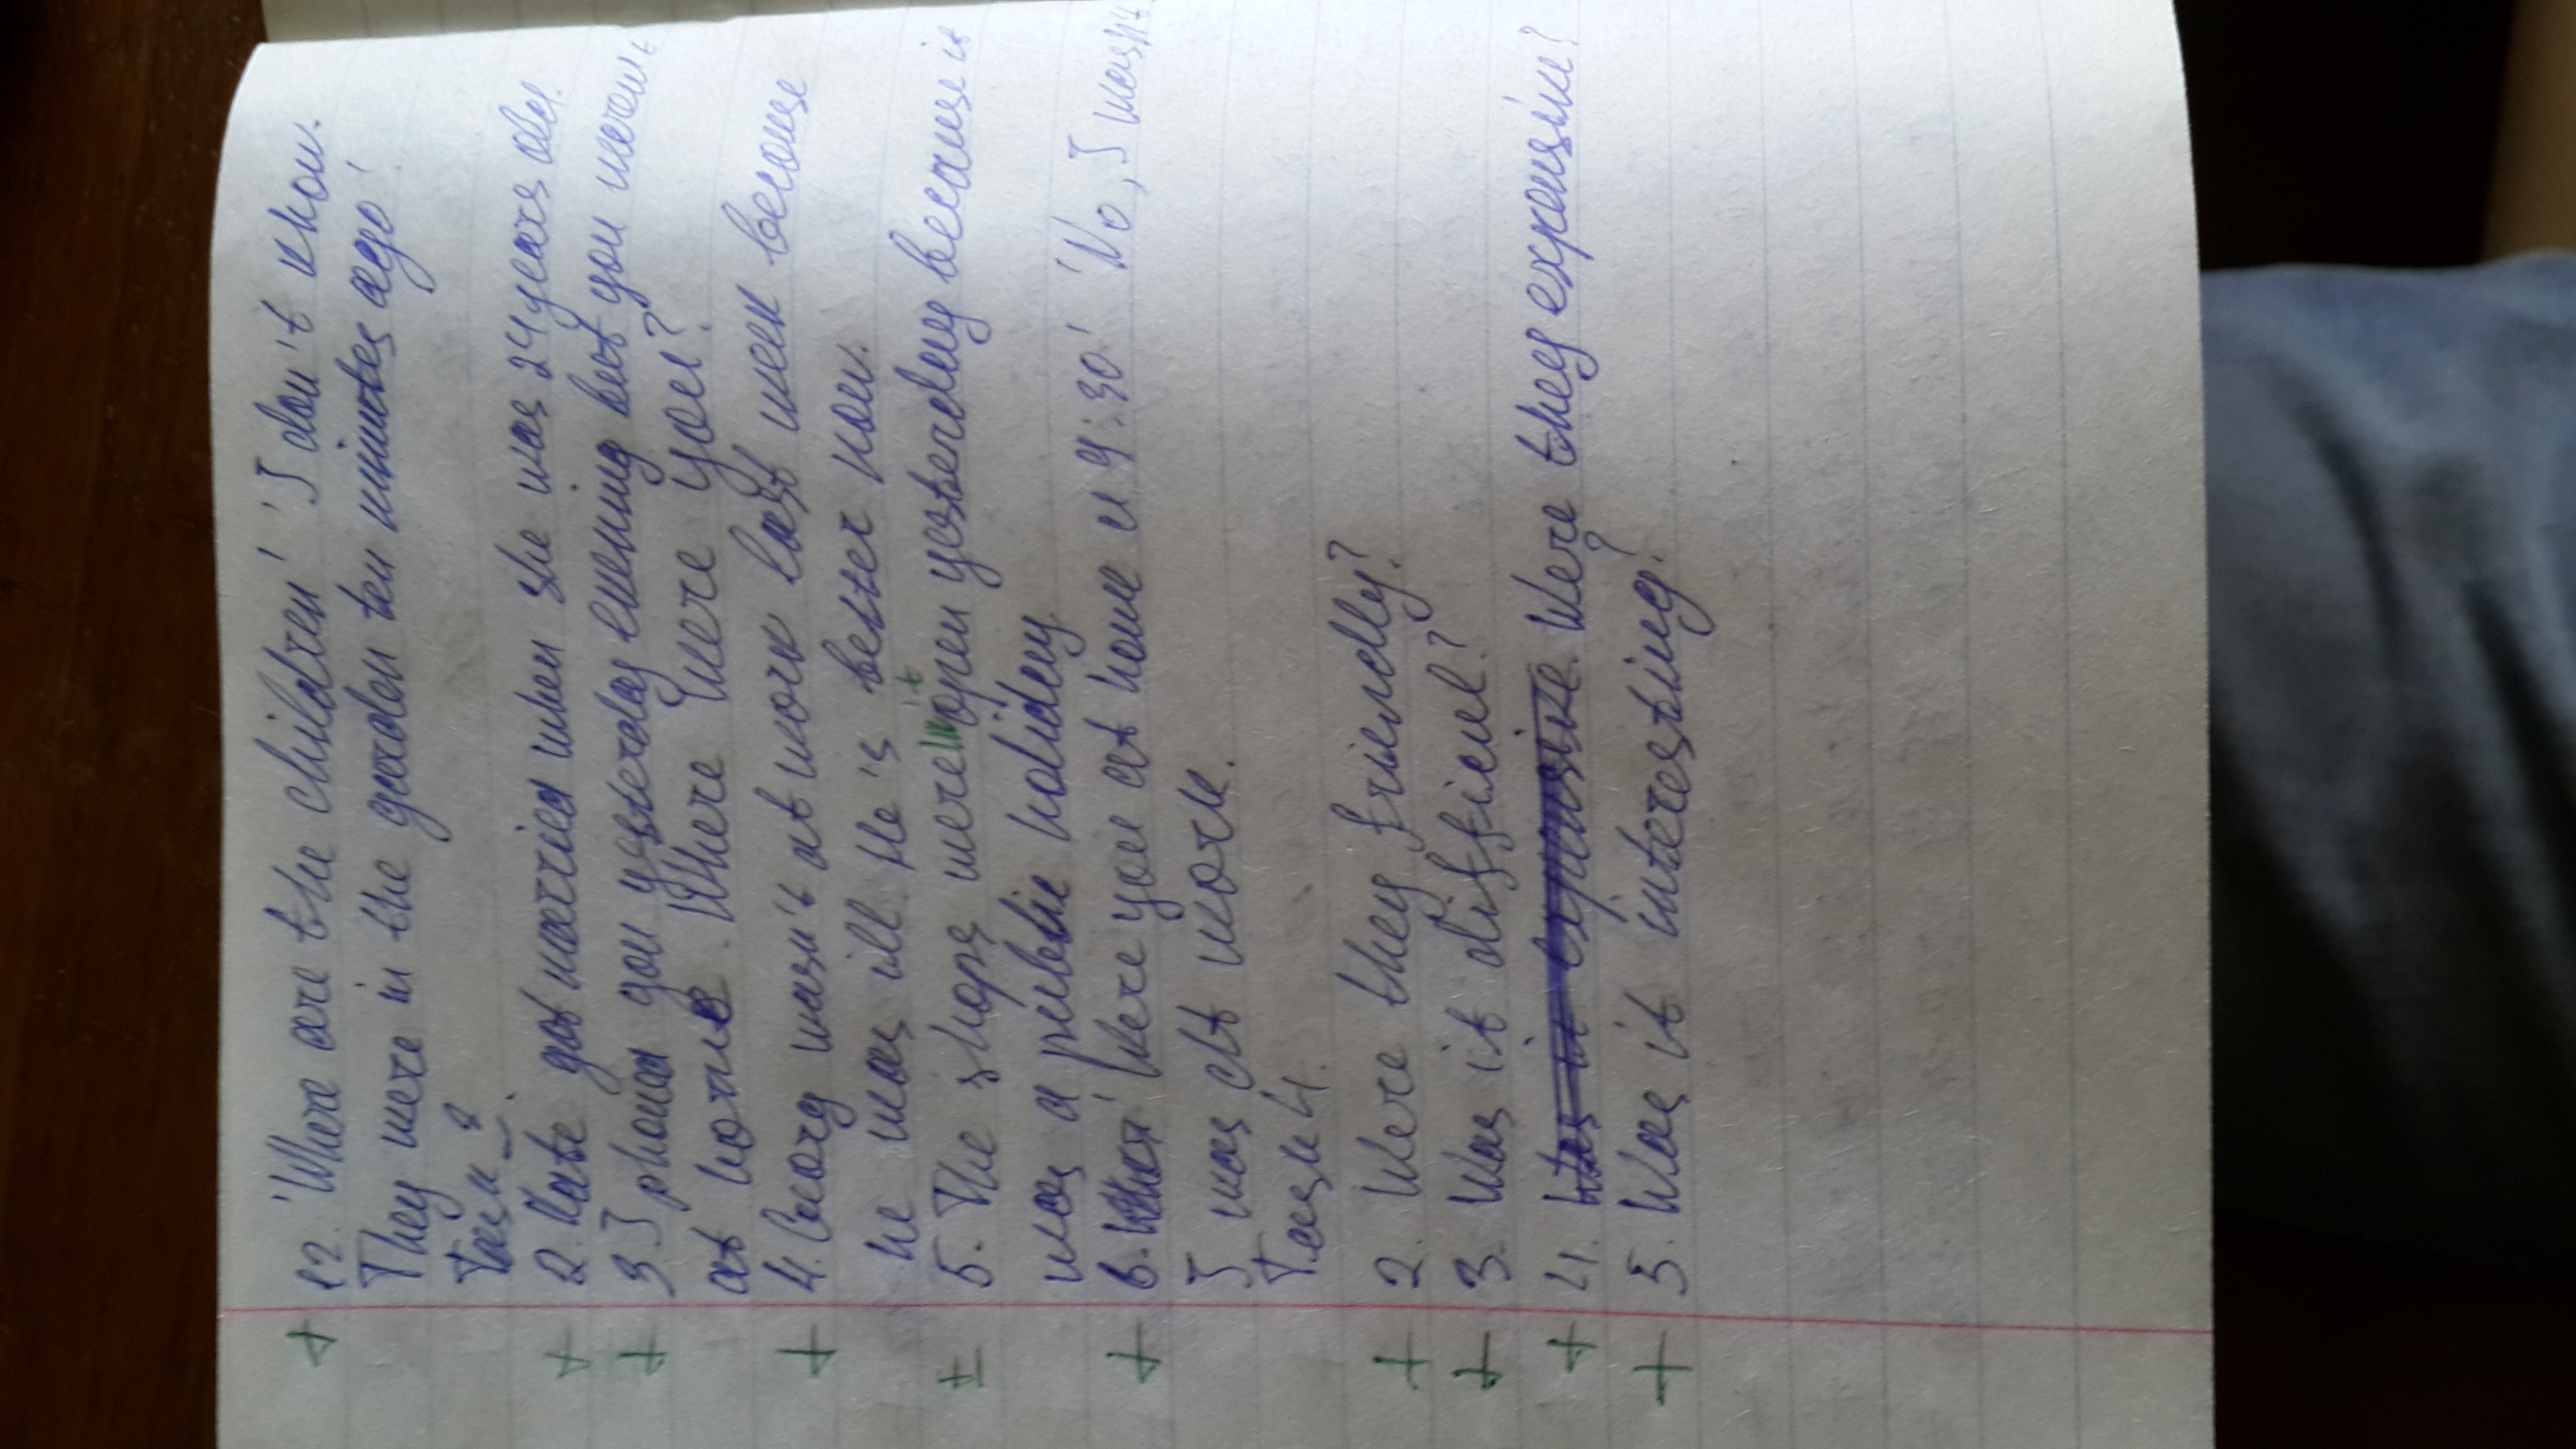 + 12. 'Where are the children' 'I don't know.
They were in the garden ten minutes ago'.
Task 3.
+ 2. Kate got married when she was 24 years old.
+ 3 I phoned you yesterday evening but you weren't
at home. Where were you?
+ 4. Georg wasn't at work last week because
he was ill. He's better now.
± 5. The shops weren't open yesterday because it
was a public holiday
+ 6. 'Were you at home a 9:30' 'No, I wasn't
I was at work.
Task 4.
+ 2. Were they friendly?
+ 3. Was it difficul?
+ 4. Was it expensive. Were they expensive?
+ 5. Was it interesting?